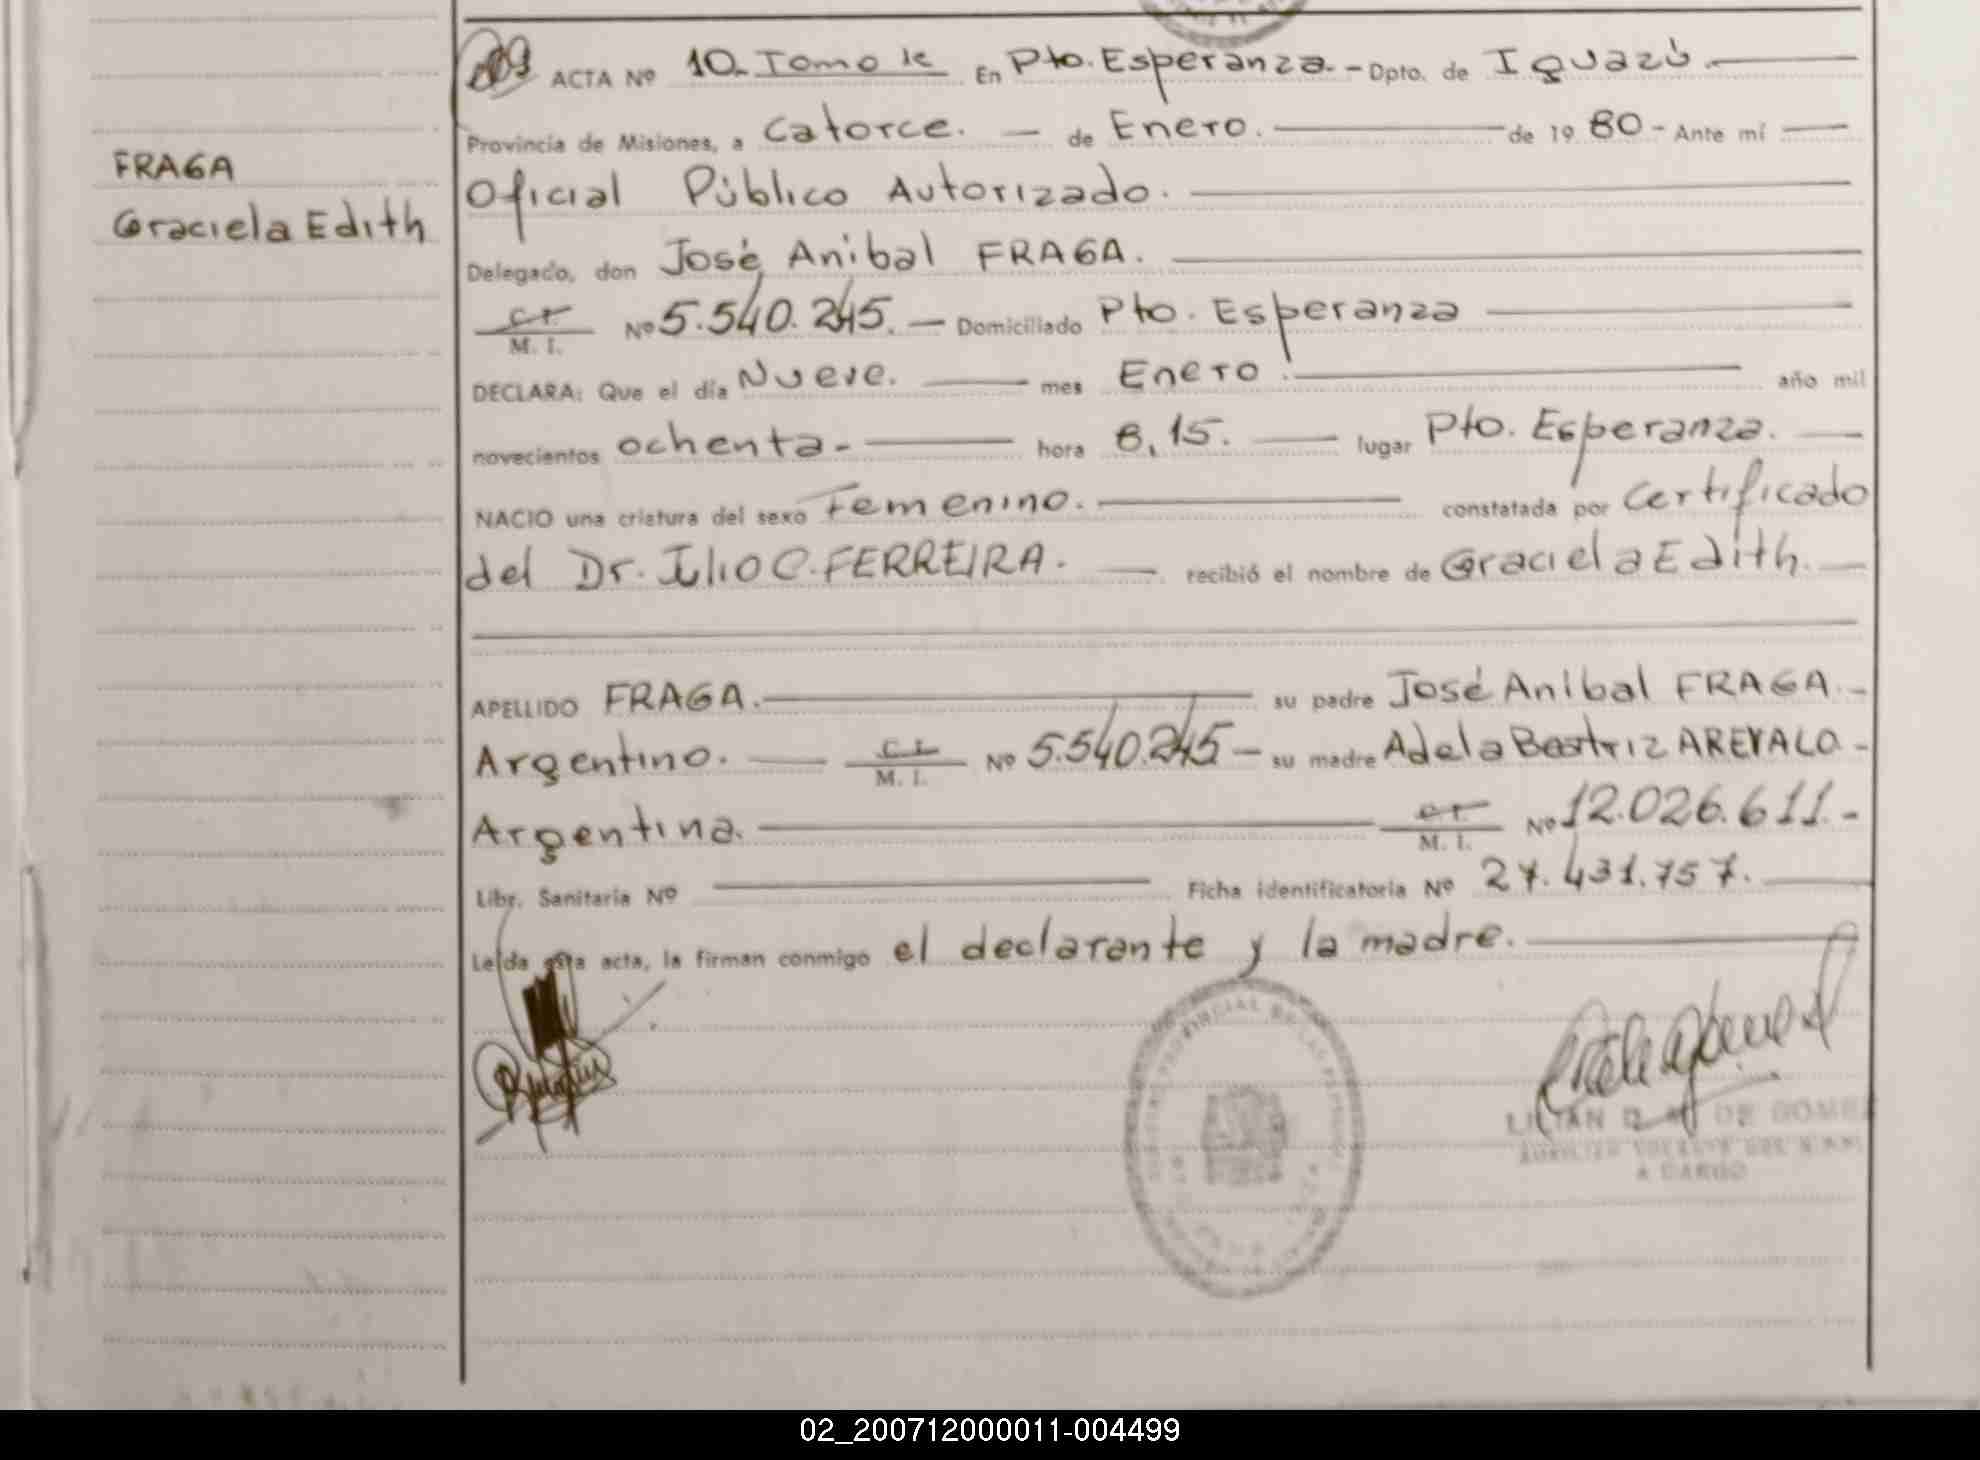 FRAGA
Graciela Edith
ACTA Nº 10. Tomo 1º En Pto. Esperanza. - Dpto. de Iguazú.
Provincia de Misiones, a Catorce. — de Enero. — de 19 80 - Ante mí —
Oficial Público Autorizado.
Delegado, don José Anibal FRAGA.
C.I. M. I. Nº 5.540.245. — Domiciliado Pto. Esperanza
DECLARA: Que el día Nueve. — mes Enero. — año mil
novecientos ochenta - — hora 8,15. — lugar Pto. Esperanza. —
NACIO una criatura del sexo Femenino. — constatada por Certificado
del Dr. Julio C. FERREIRA. — recibió el nombre de Graciela Edith. —
APELLIDO FRAGA. — su padre José Anibal FRAGA. -
Argentino. — C.I. M. I. Nº 5.540.245 - su madre Adela Beatriz AREVALO -
Argentina. — C.I. M. I. Nº 12.026.611. -
Libr. Sanitaria Nº — Ficha identificatoria Nº 27.431.757. —
Leída esta acta, la firman conmigo el declarante y la madre. —
LILIAN
DE GOMEZ
A CARGO
02_200712000011-004499